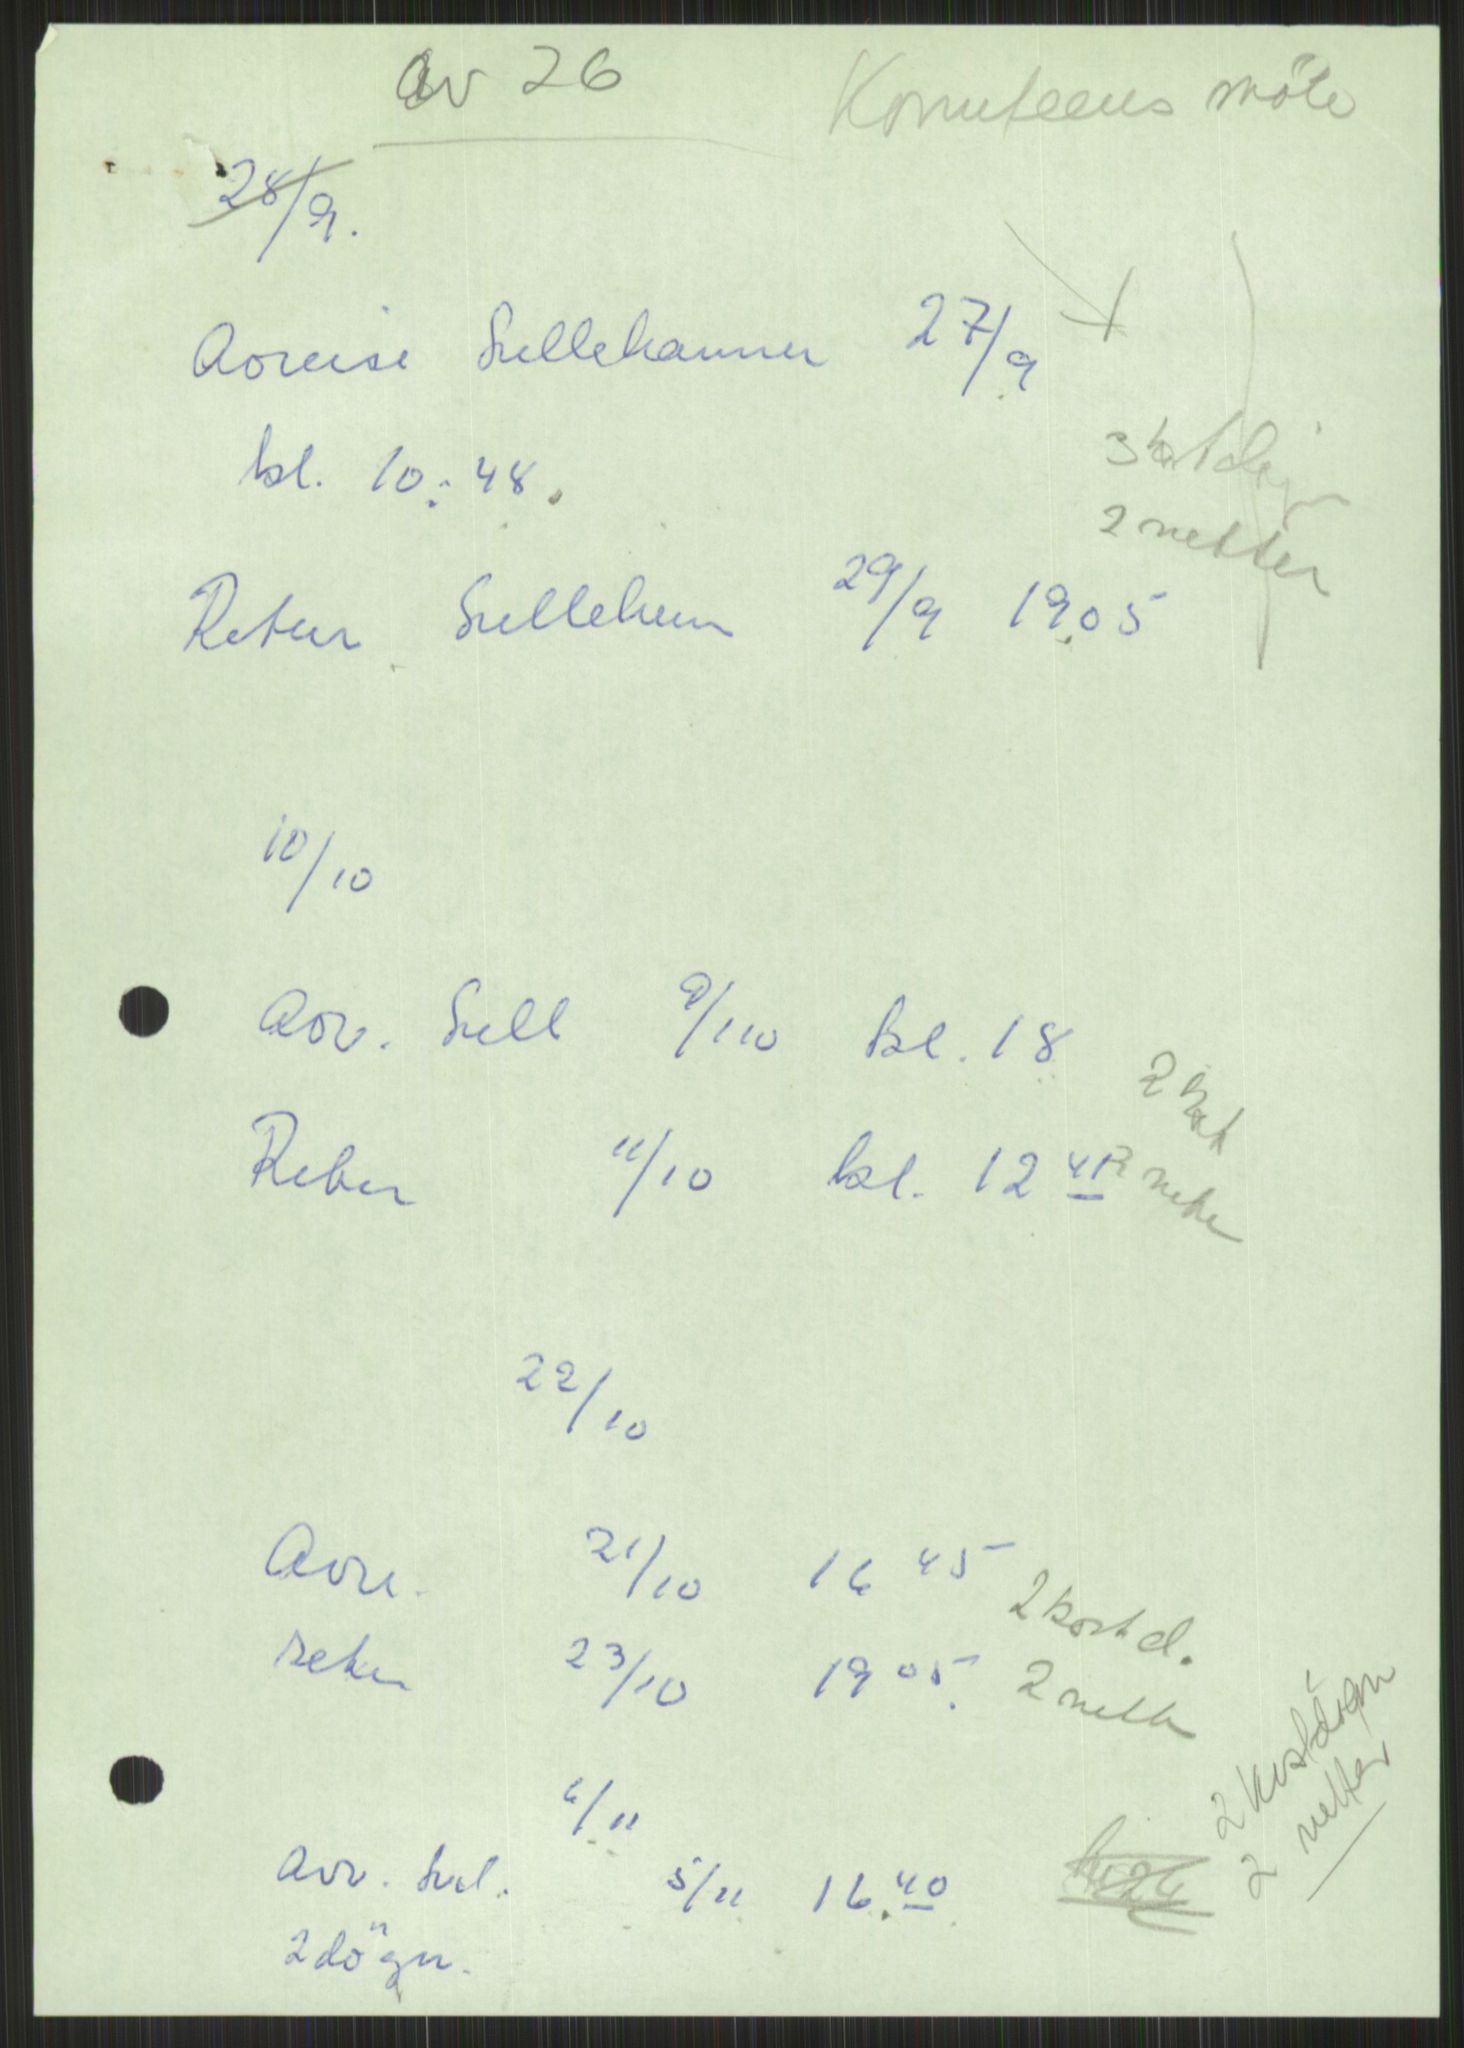 av 26
Komiteens möte
28/9.
Avreise Lillehammer 27/9
kl. 10:48.
3 kostdøgn
2 netter
Retur Lilleham 29/9 19.05
10/10
Avr. Lill 9/10 kl. 18
2 kost
Retur 11/10 kl. 12
2 nette
22/10
Avr. 21/10 16 45
2 kost d.
retur 23/10 19 05.
2 nett
6/11
Avr. Lil. 5/11 16.40
2 kostdögn
2 netter
2 dögn.